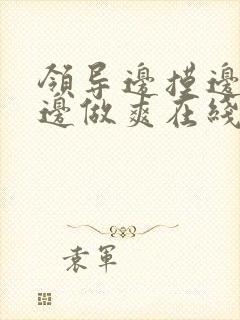 領导邊摸邊
邊做爽在綫
袁軍